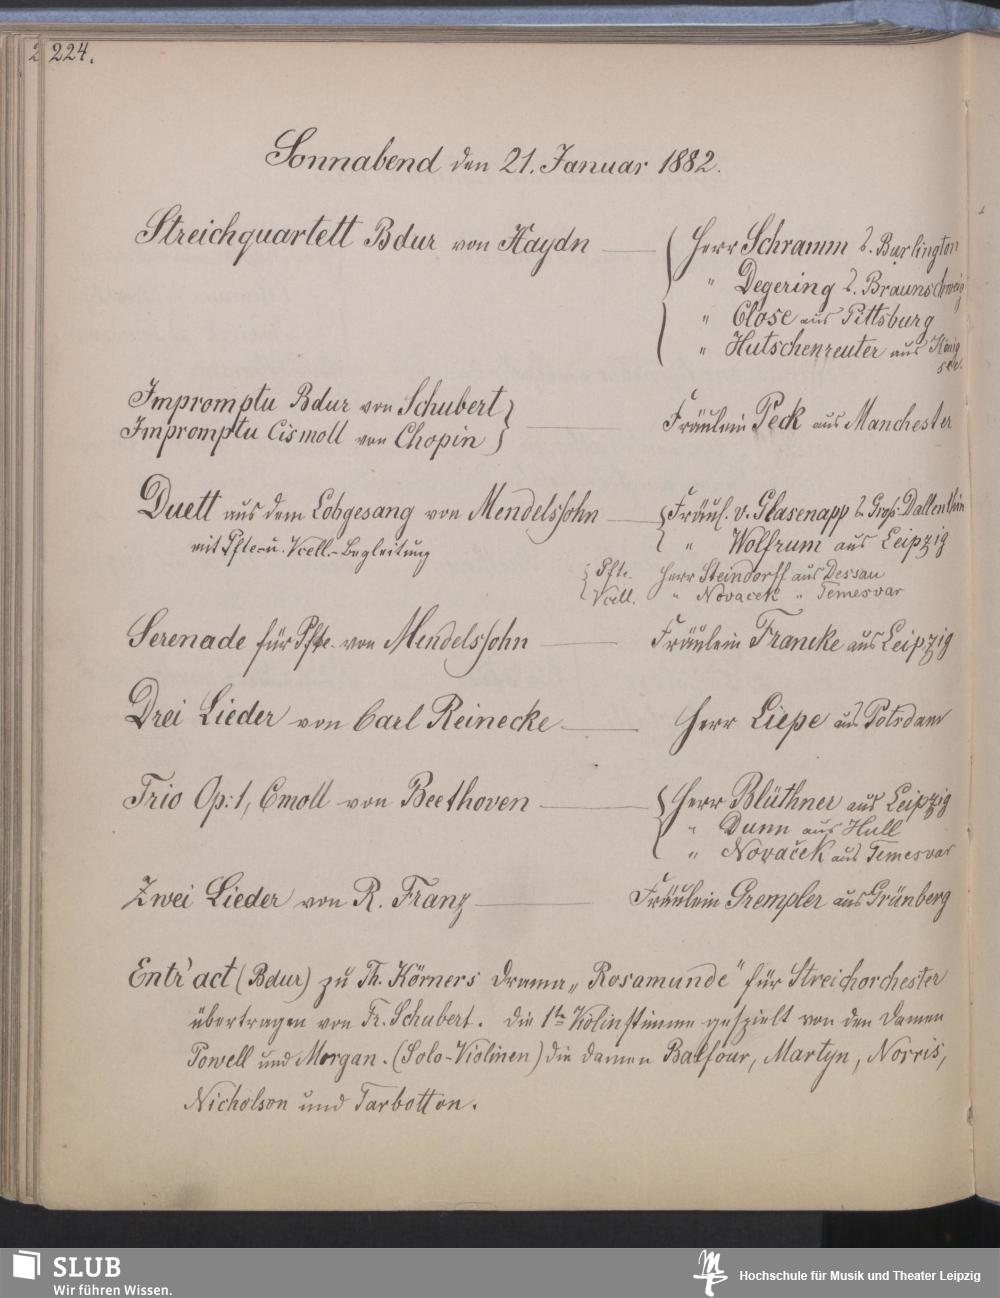 224.
Sonnabend den 21. Januar 1882.
Streichquartett Bdur von Haydn — Herr Schramm a. Burlington
" Degering a. Braunschweig
" Close aus Pittsburg
" Hutschenreuter aus König
see.
Impromptu Bdur von Schubert
Impromptu Cismoll von Chopin — Fräulein Peck aus Manchester
Duett aus dem Lobgesang von Mendelssohn — Fräul. v. Glasenapp a. Groß-Dallenthin
mit Pfte- u. Vcell.-Begleitung " Wolfrum aus Leipzig
Pfte. Herr Steindorff aus Dessau
Vcell. " Novacek " Temesvar
Serenade für Pfte. von Mendelssohn — Fräulein Francke aus Leipzig
Drei Lieder von Carl Reinecke — Herr Liepe aus Potsdam
Trio Op: 1, Cmoll von Beethoven — Herr Blüthner aus Leipzig
" Dunn aus Hull
" Novaček aus Temesvar
Zwei Lieder von R. Franz — Fräulein Grempler aus Grünberg
Entr'act (Bdur) zu Th. Körners Drama „Rosamunde" für Streichorchester
übertragen von Fr. Schubert. Die 1te Violinstimme gespielt von den Damen
Powell und Morgan. (Solo-Violinen) die Damen Balfour, Martyn, Norris,
Nicholson und Tarbotton.
SLUB
Wir führen Wissen.
Hochschule für Musik und Theater Leipzig